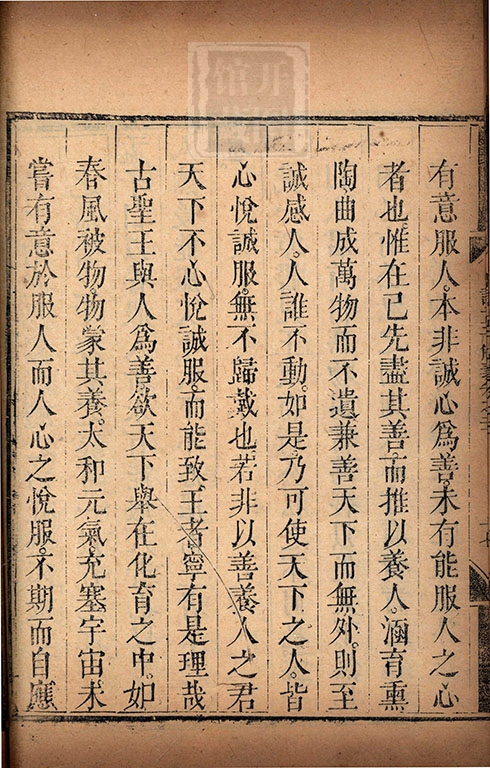 有意服人。本非誠心爲善。未有能服人之心
者也。惟在己先盡其善。而推以養人。涵育熏
陶。曲成萬物而不遺。兼善天下而無外。則至
誠感人。人誰不動。如是。乃可使天下之人。皆
心悅誠服。無不歸戴也。若非以善養人之君
天下不心悅誠服。而能致王者。寧有是理哉
古聖王與人爲善。欲天下舉在化育之中。如
春風被物。物蒙其養。太和元氣。充塞宇宙。未
嘗有意於服人。而人心之悅服。不期而自應